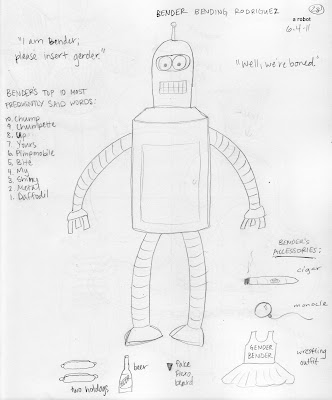 BENDER BENDING RODRIGUEZ
28
a robot
6.4.11
"I am bender,
please insert gerder."
"Well, we're boned."
BENDER'S TOP 10 MOST
FREQUENTLY SAID WORDS:
10. Chump
9. Chumpette
8. Up
7. Yours
6. Pimpmobile
5. Bite
4. My
3. Shiny
2. Metal
1. Daffodil
BENDER'S
ACCESSORIES:
cigar
monocle
GENDER
BENDER
wrestling
outfit
two hotdogs
BEER
beer
fake
fiero
beard